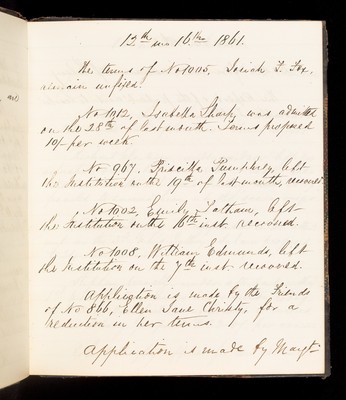 12th mo 16th 1861.
The terms of No 1005, Josiah F. Fox,
remain unfixed.
No 1012, Isabella Sharp, was admitted
on the 28th of last month. Terms proposed
10/- per week.
No 967, Priscilla Pumphrey, left
the Institution on the 19th of last month, recovered.
No 1002, Emily Latham, left
the Institution on the 16th inst. recovered.
No 1008, William Edmunds, left
the Institution on the 7th inst. recovered.
Application is made by the Friends
of No 866, Ellen Jane Christy, for a
reduction in her terms.
Application is made by Margt